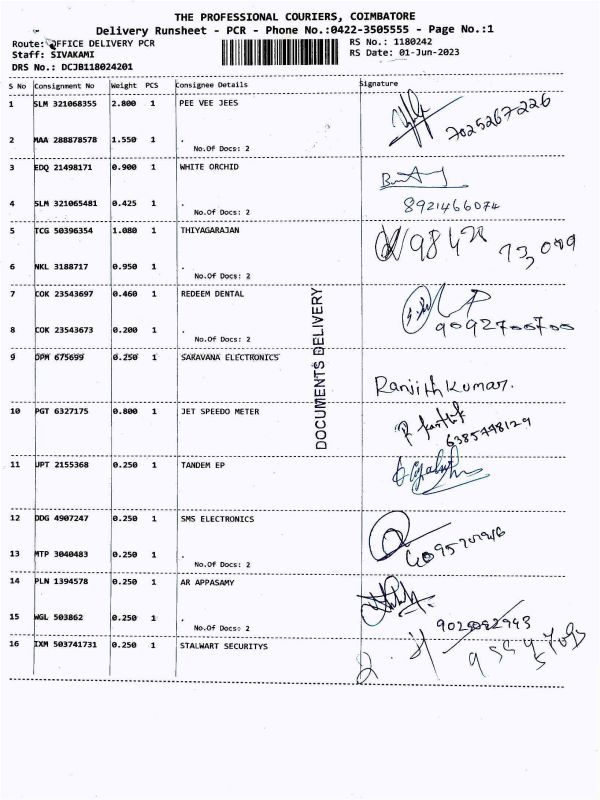 THE PROFESSIONAL COURIERS, COIMBATORE
Delivery Runsheet - PCR - Phone No.:0422-3505555 - Page No.:1
Route: OFFICE DELIVERY PCR
RS No.: 1180242
Staff: SIVAKAMI
RS Date: 01-Jun-2023
DRS No.: DCJB118024201
S No Consignment No Weight PCS Consignee Details Signature
1 SLM 321068355 2.800 1 PEE VEE JEES
7025267226
2 MAA 288878578 1.550 1 .
No.Of Docs: 2
3 EDQ 21498171 0.900 1 WHITE ORCHID
4 SLM 321065481 0.425 1 . 8921466074
No.Of Docs: 2
5 TCG 50396354 1.080 1 THIYAGARAJAN
6 NKL 3188717 0.950 1 .
No.Of Docs: 2
7 COK 23543697 0.460 1 REDEEM DENTAL
8 COK 23543673 0.200 1 . 9092700700
No.Of Docs: 2
9 OPM 675699 0.250 1 SARAVANA ELECTRONICS
Ranjith Kumar.
10 PGT 6327175 0.800 1 JET SPEEDO METER
6385448129
11 UPT 2155368 0.250 1 TANDEM EP
12 DDG 4907247 0.250 1 SMS ELECTRONICS
13 MTP 3040483 0.250 1 .
No.Of Docs: 2
14 PLN 1394578 0.250 1 AR APPASAMY
15 WGL 503862 0.250 1 .
No.Of Docs: 2
16 IXM 503741731 0.250 1 STALWART SECURITYS
DOCUMENTS DELIVERY